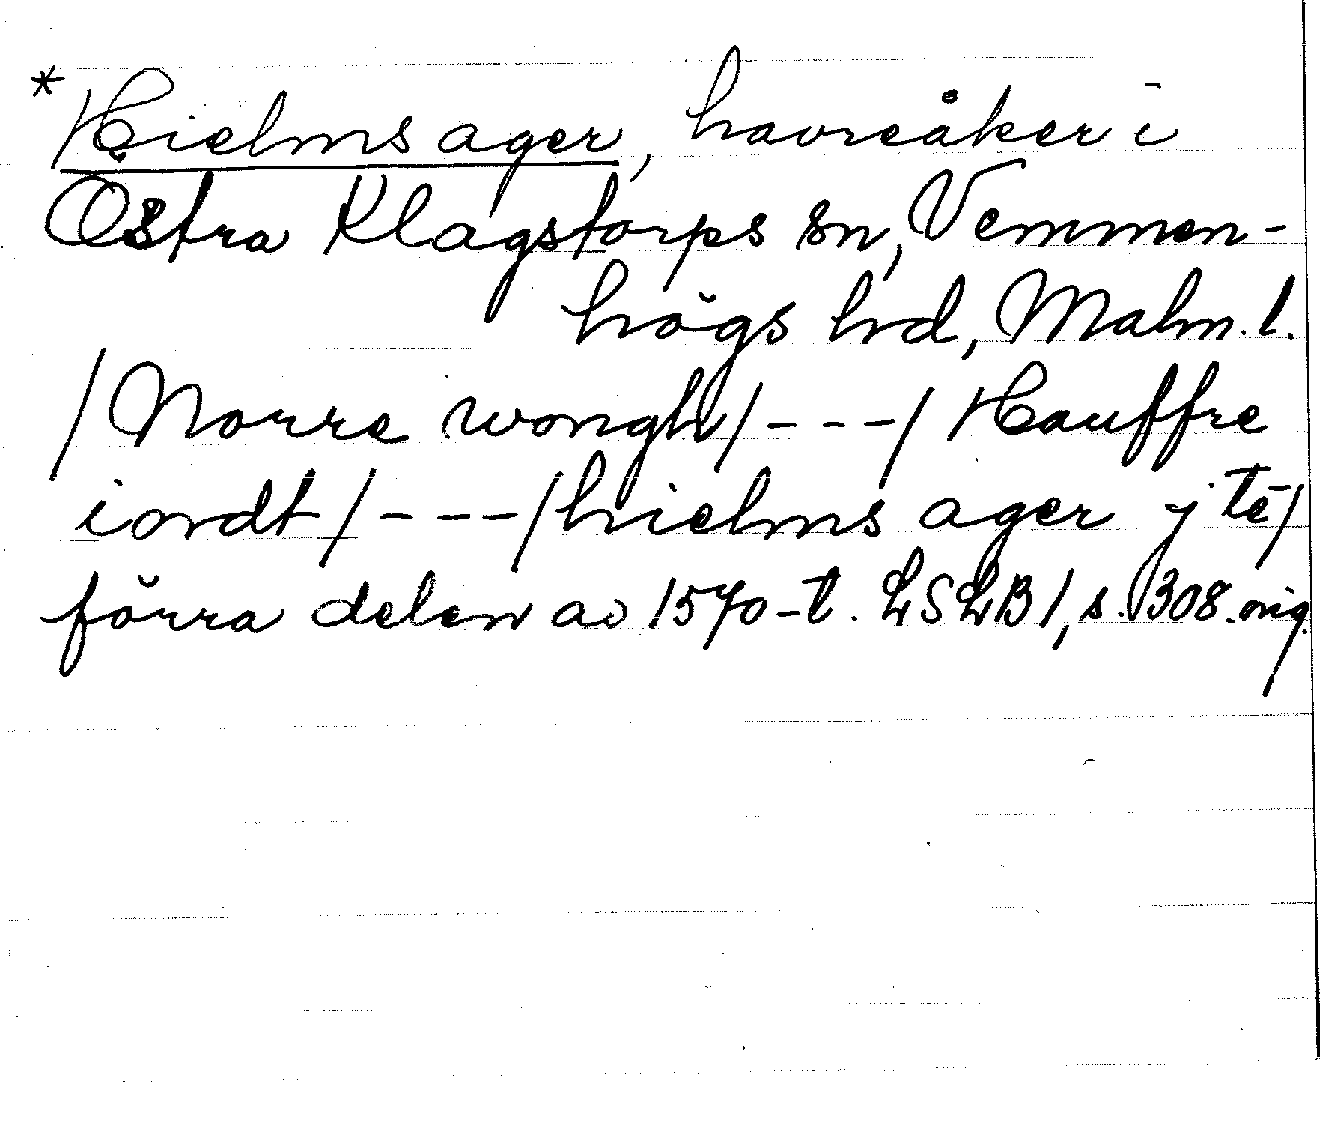 *Hielms ager, havreåker i
Östra Klagstorps sn, Vemmen-
högs hd, Malm. l.
/Norre wongh/---/Hauffre
iordt/---/hielms ager j tē/
förra delen av 1570-t. LSLB 1, s. 308. orig.